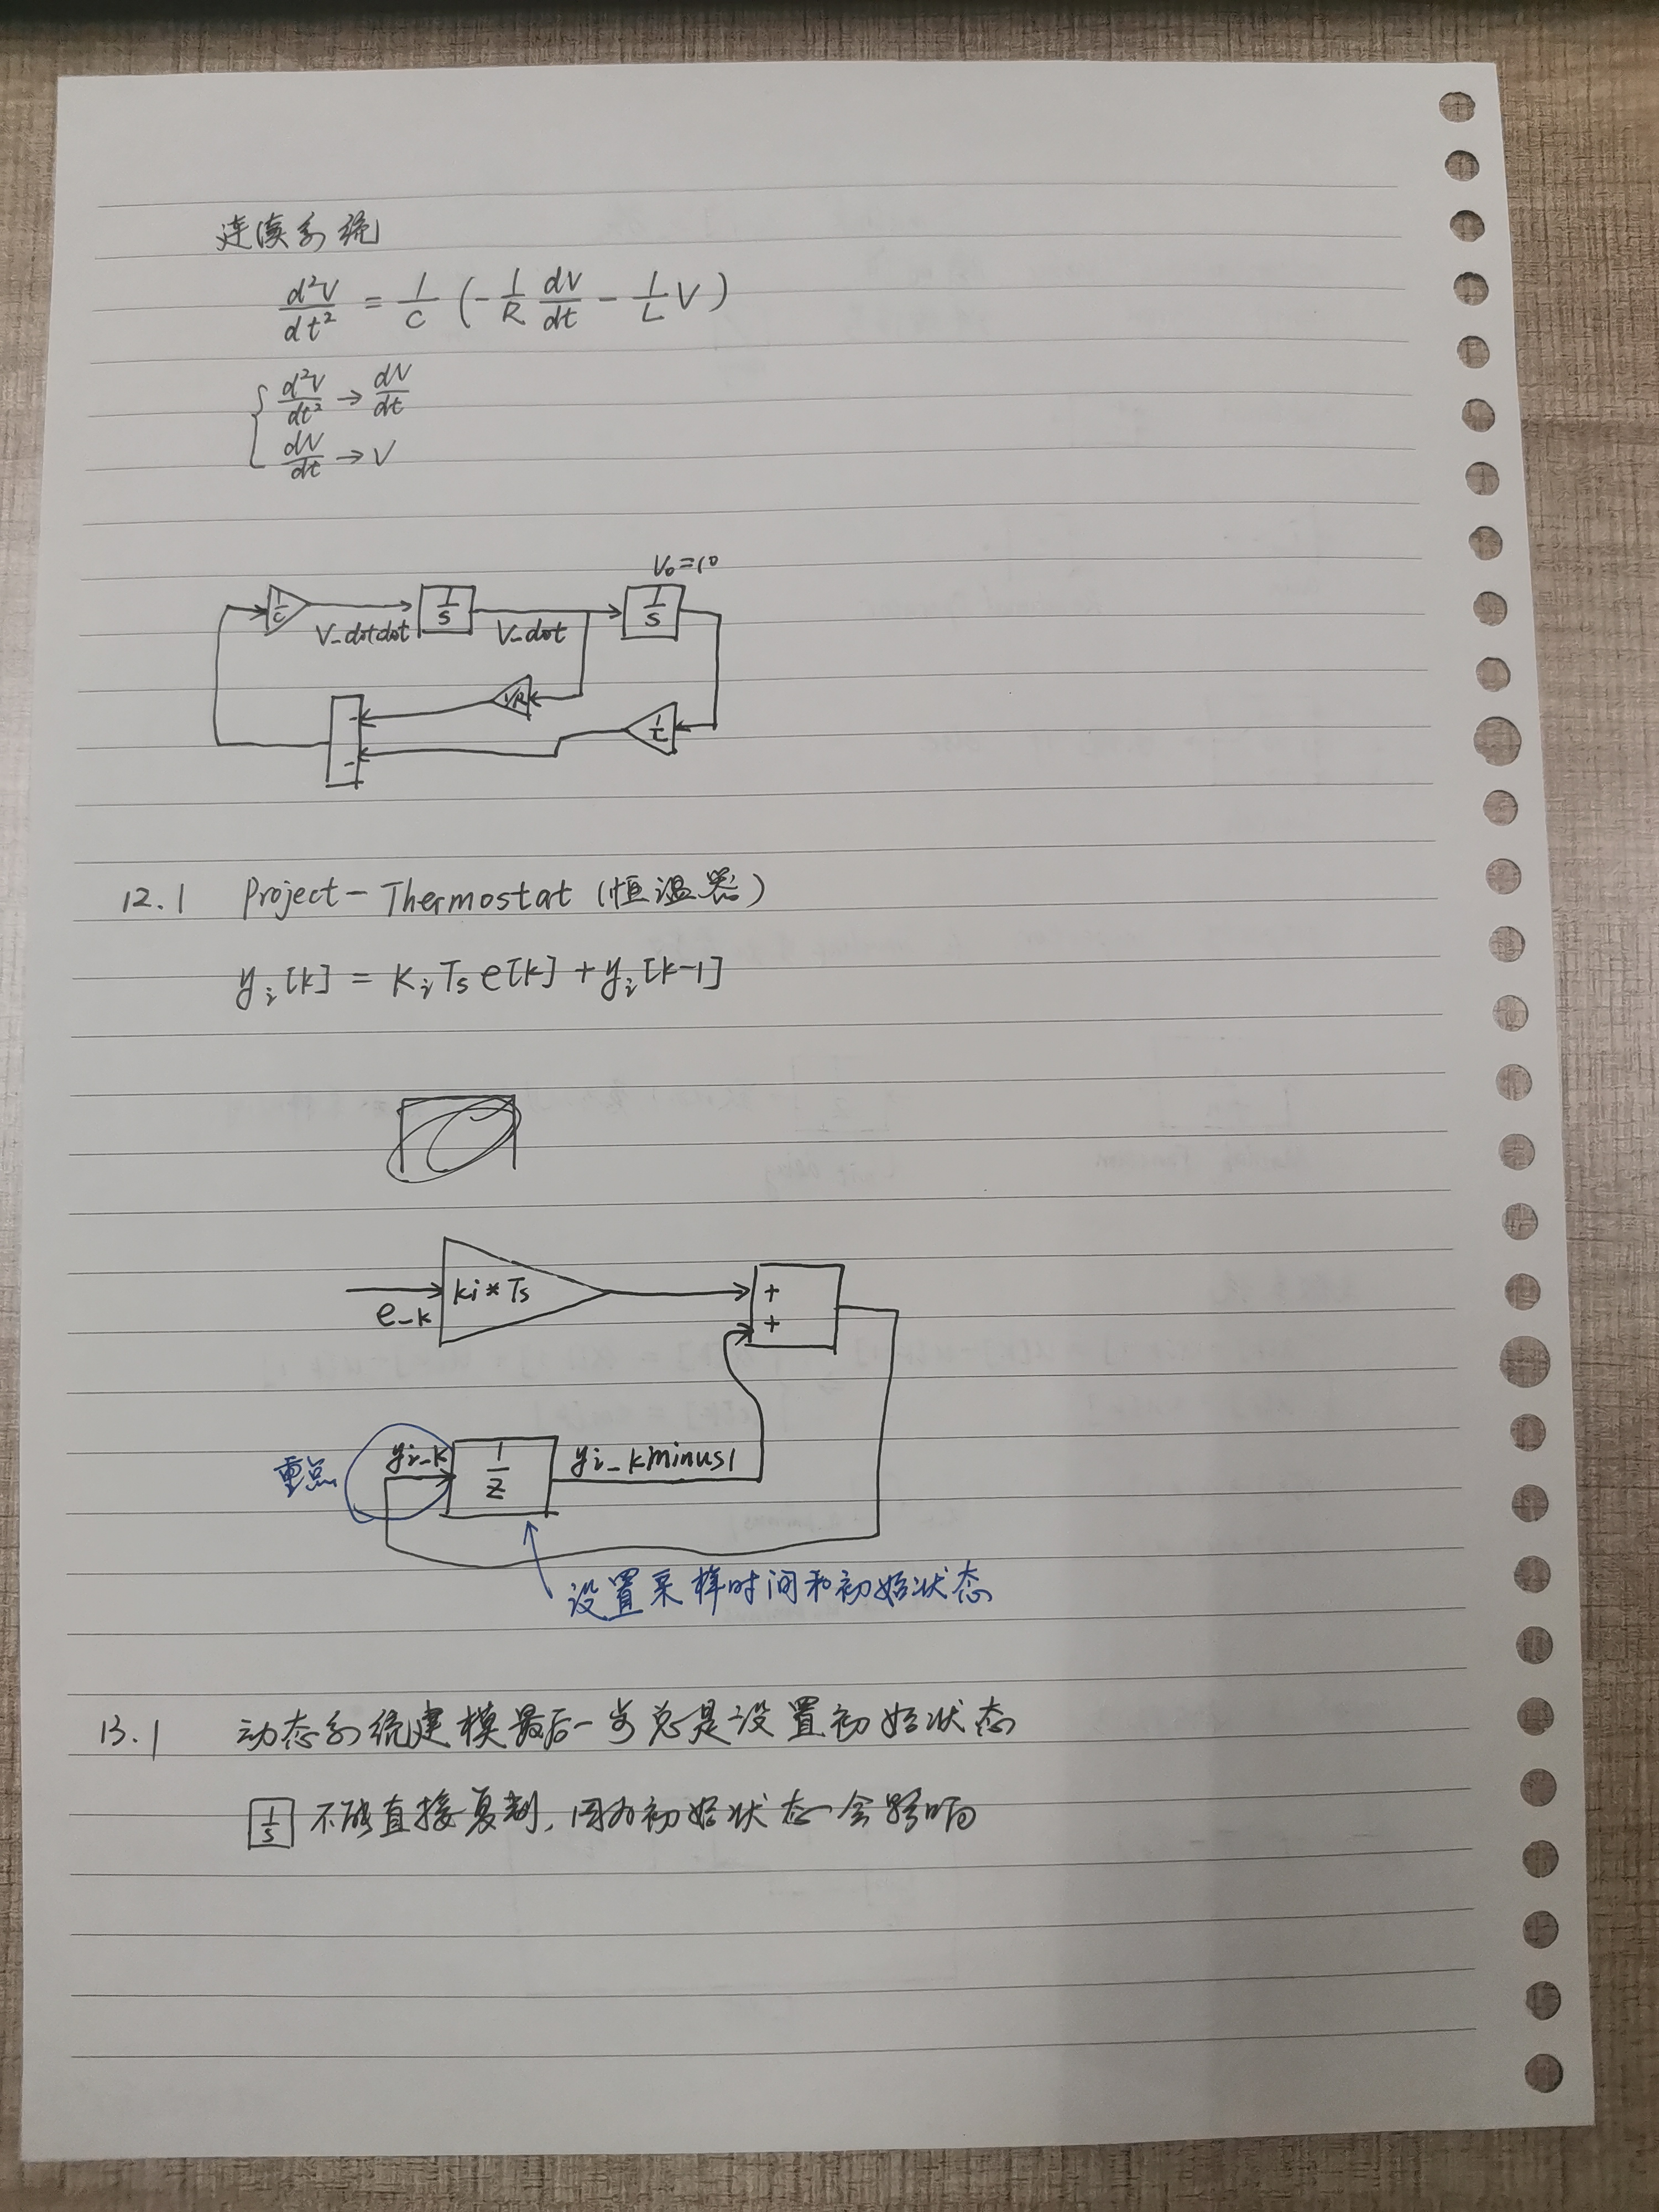 连续系统
d²V/dt² = 1/C (-1/R dV/dt - 1/L V)
d²V/dt² → dV/dt
dV/dt → V
V₀=10
1/C
V_dotdot
1/S
V_dot
1/S
1/R
-
1/L
-
12.1 Project - Thermostat (恒温器)
yᵢ[k] = Kᵢ Ts e[k] + yᵢ[k-1]
e_k
ki * Ts
+
+
重点
yi_k
1/Z
yi_kminus1
设置采样时间和初始状态
13.1 动态系统建模最后一步总是设置初始状态
1/S 不能直接复制,因为初始状态会影响